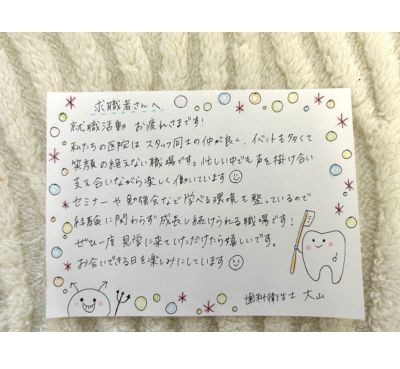 求職者さんへ
就職活動 お疲れさまです!
私たちの医院は スタッフ同士の仲が良く、イベントも多くて
笑顔の絶えない職場です。忙しい中でも声を掛け合い
支え合いながら楽しく働いています
セミナーや勉強会など学べる環境も整っているので
経験に関わらず成長し続けられる職場です!
ぜひ一度 見学に来ていただけたら嬉しいです。
お会いできる日を楽しみにしています
歯科衛生士 大山